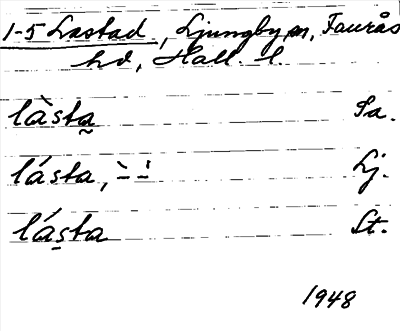 1-5 Lastad, Ljungby sn, Faurås
hd, Hall. l.
làsta̰ Sa.
lásta, -̀ -́ Lj.
láṣta St.
1948